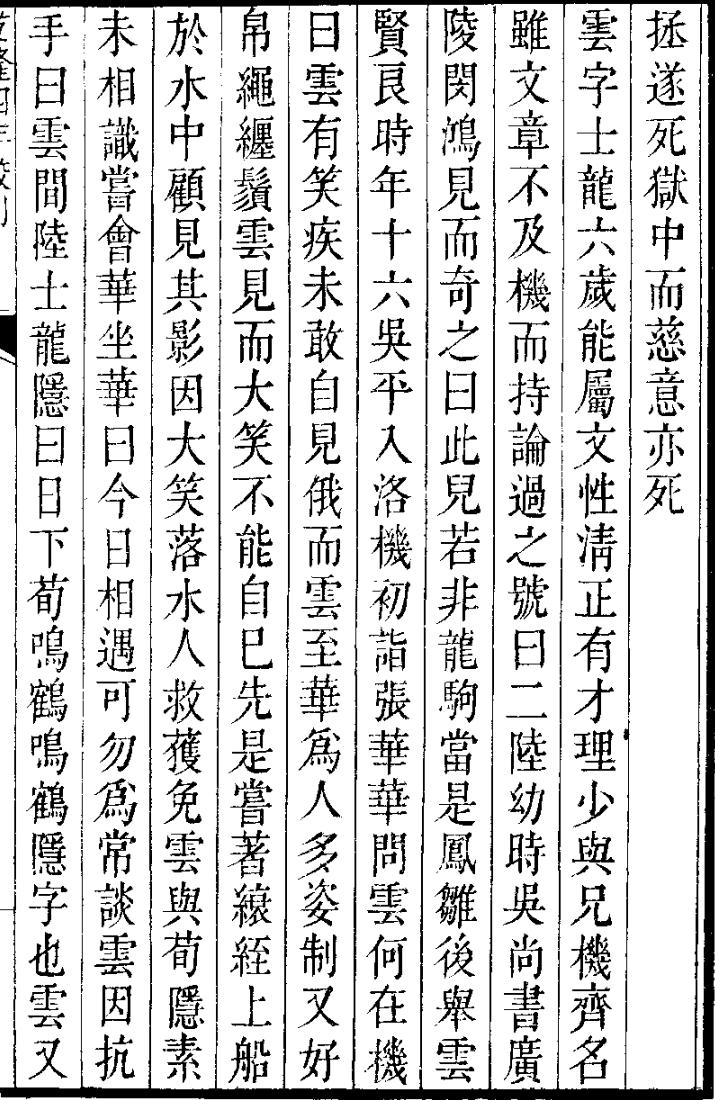 拯遂死獄中而慈意亦死
雲字士龍六歲能屬文性淸正有才理少與兄機齊名
雖文章不及機而持論過之號曰二陸幼時吳尚書廣
陵閔鴻見而奇之曰此兒若非龍駒當是鳳雛後舉雲
賢良時年十六吳平入洛機初詣張華華問雲何在機
曰雲有笑疾未敢自見俄而雲至華爲人多姿制又好
帛繩纒鬚雲見而大笑不能自巳先是嘗著縗絰上船
於水中顧見其影因大笑落水人救蒦免雲與荀隱素
未相識嘗會華坐華曰今日相遇可勿爲常談雲因抗
手曰雲間陸士龍隱曰日下荀鳴鶴鳴鶴隱字也雲又